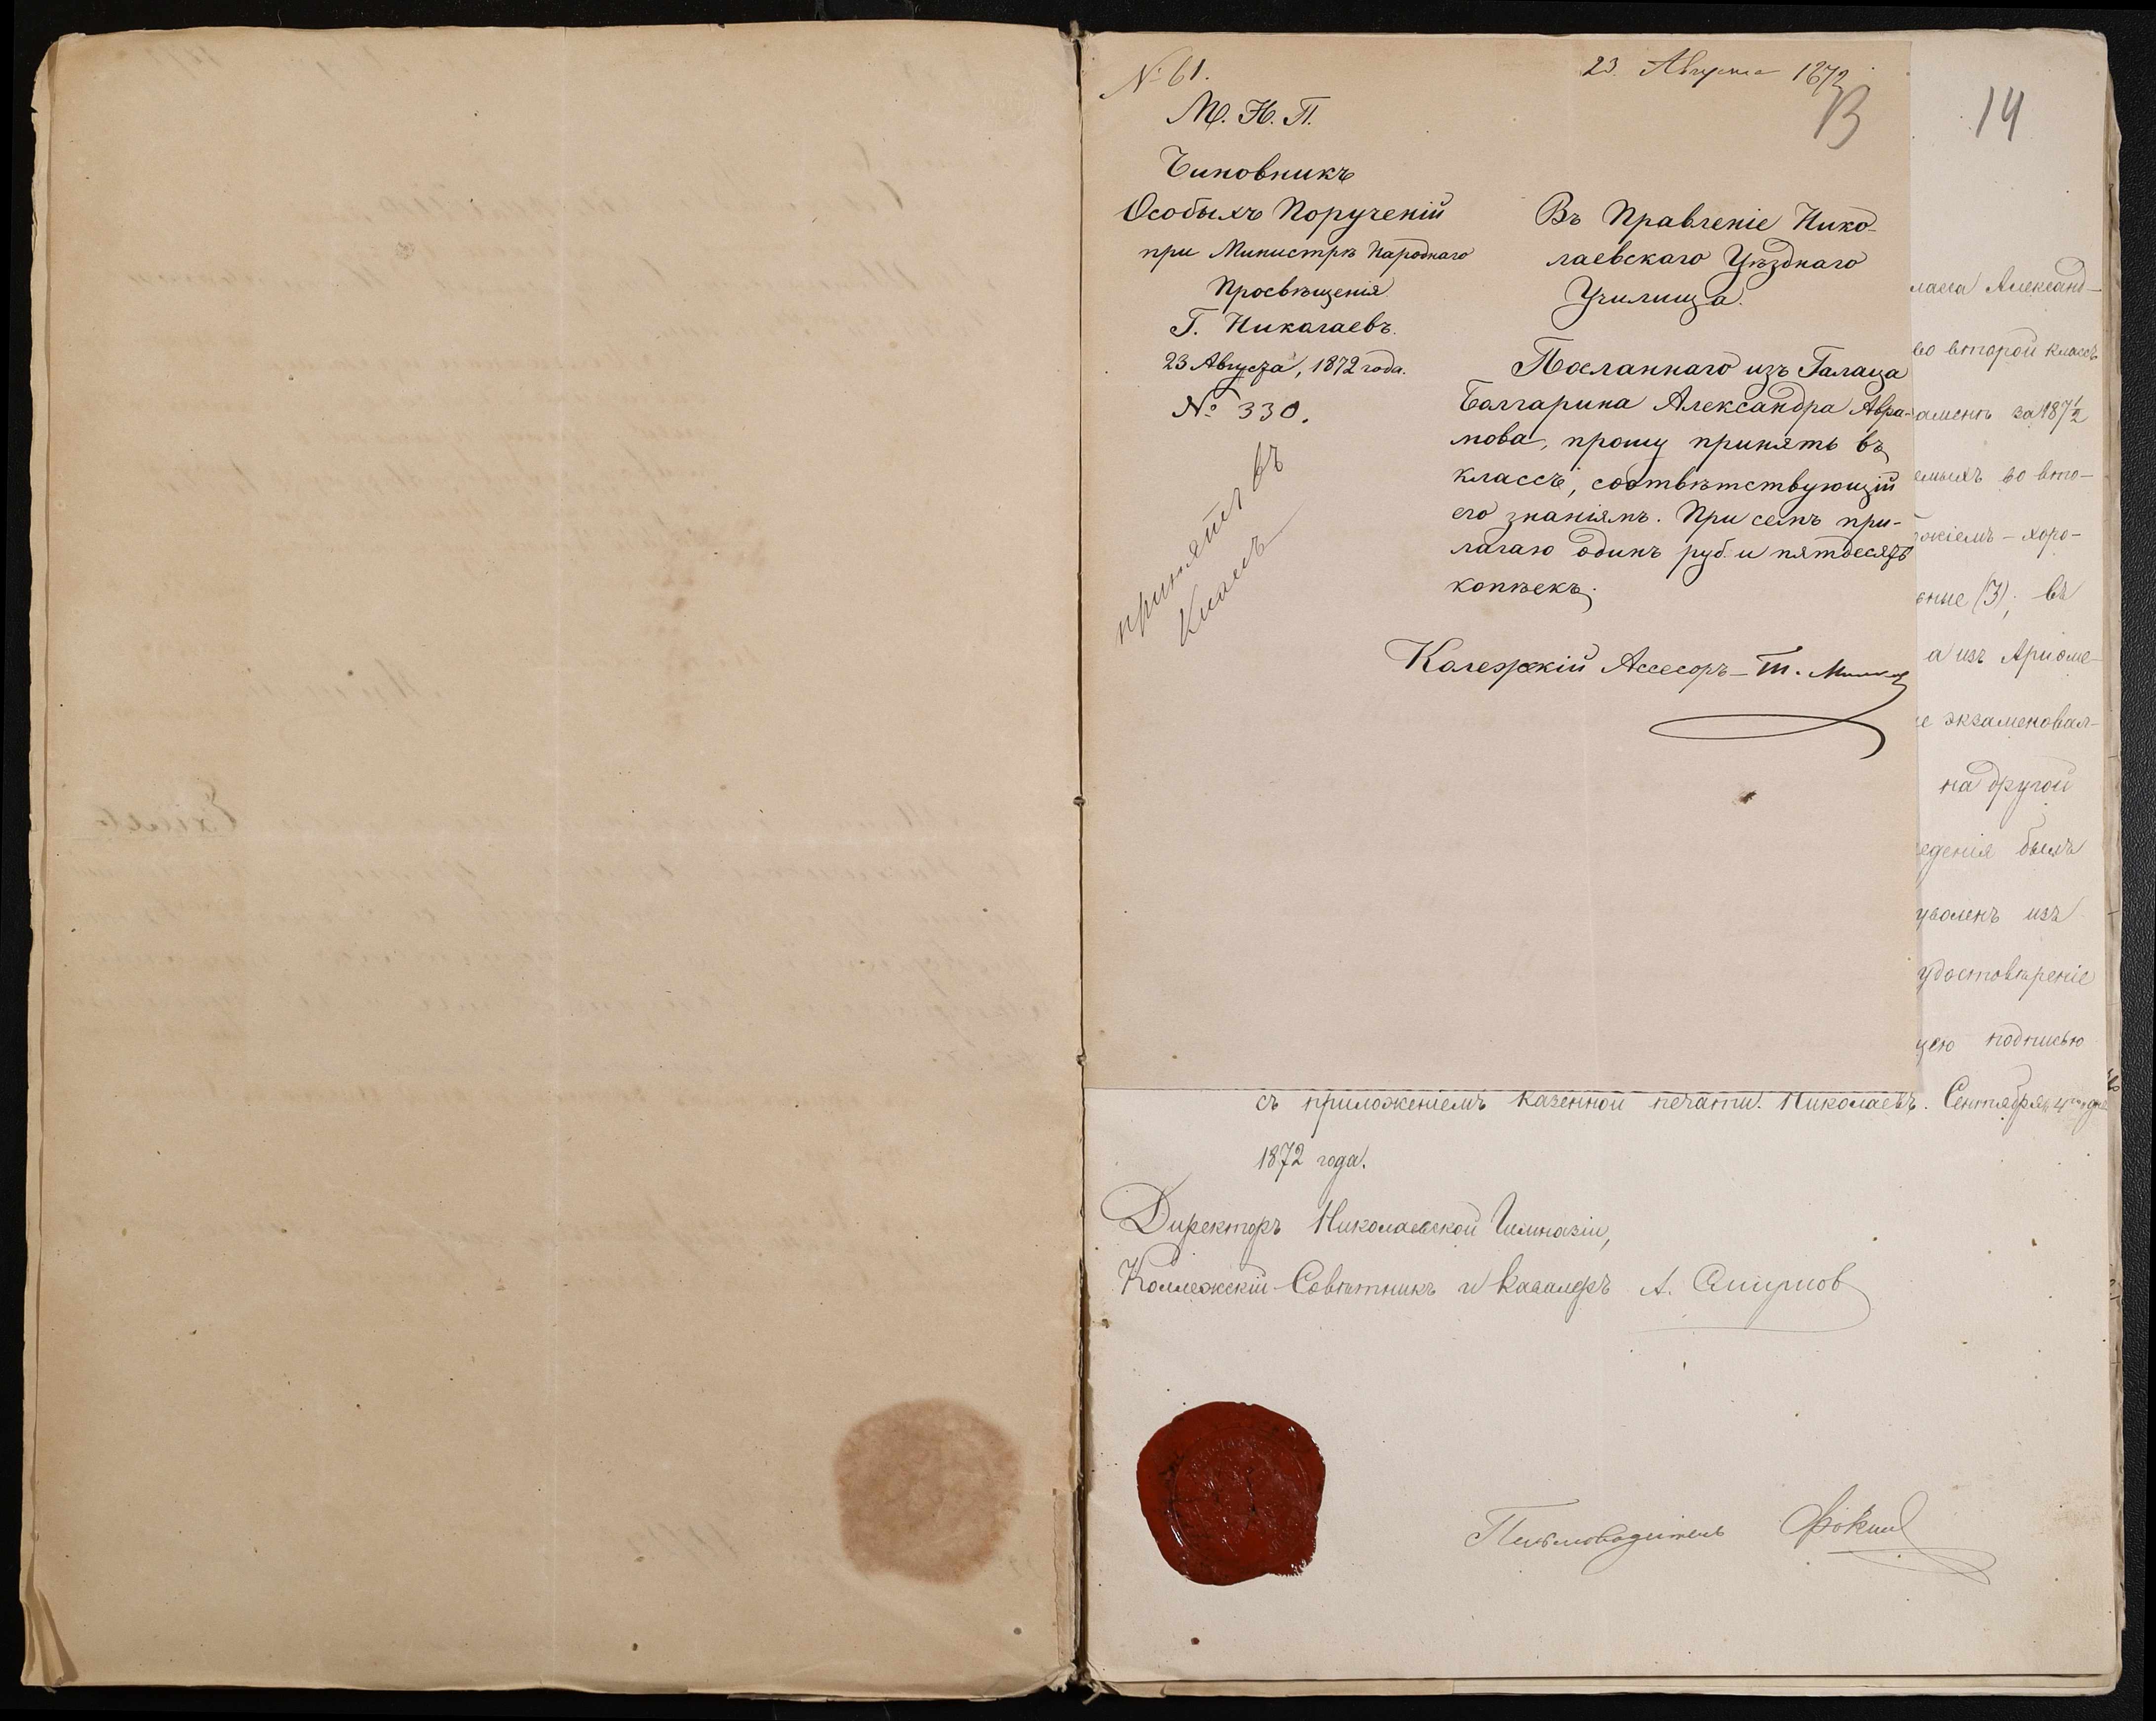 № 61.
23. Августа 1872
13
14
М. Н. П.
Чиновникъ
Особыхъ Порученій
при Министрѣ Народнаго
Просвѣщенія
Г. Никалаевъ.
23 Августа, 1872 года.
№ 330.
принять въ
Въ Правленіе Нико-
лаевскаго Уѣзднаго
Училища.
Посланнаго изъ Галаца
Болгарина Александра Авра-
мова, прошу принять въ
классъ, соотвѣтствующій
его знаніямъ. При семъ при-
лагаю одинъ руб. и пятдесятъ
копѣекъ.
Калежскій Ассесоръ - Т.
ласса Александ-
во второй классъ
аменъ за 187½
емыхъ во вто-
жіемъ - хоро-
ные (3), въ
а изъ Ариѳме-
е экзаменовал-
на другой
еденія былъ
уволенъ изъ
удостовѣреніе
щею подписью
съ приложеніемъ казенной печати. Николаевъ. Сентября 4го дня
1872 года.
Директоръ Николаевской Гимназіи,
Коллежскій Совѣтникъ и Кавалеръ А. Смирнов
Письмоводитель